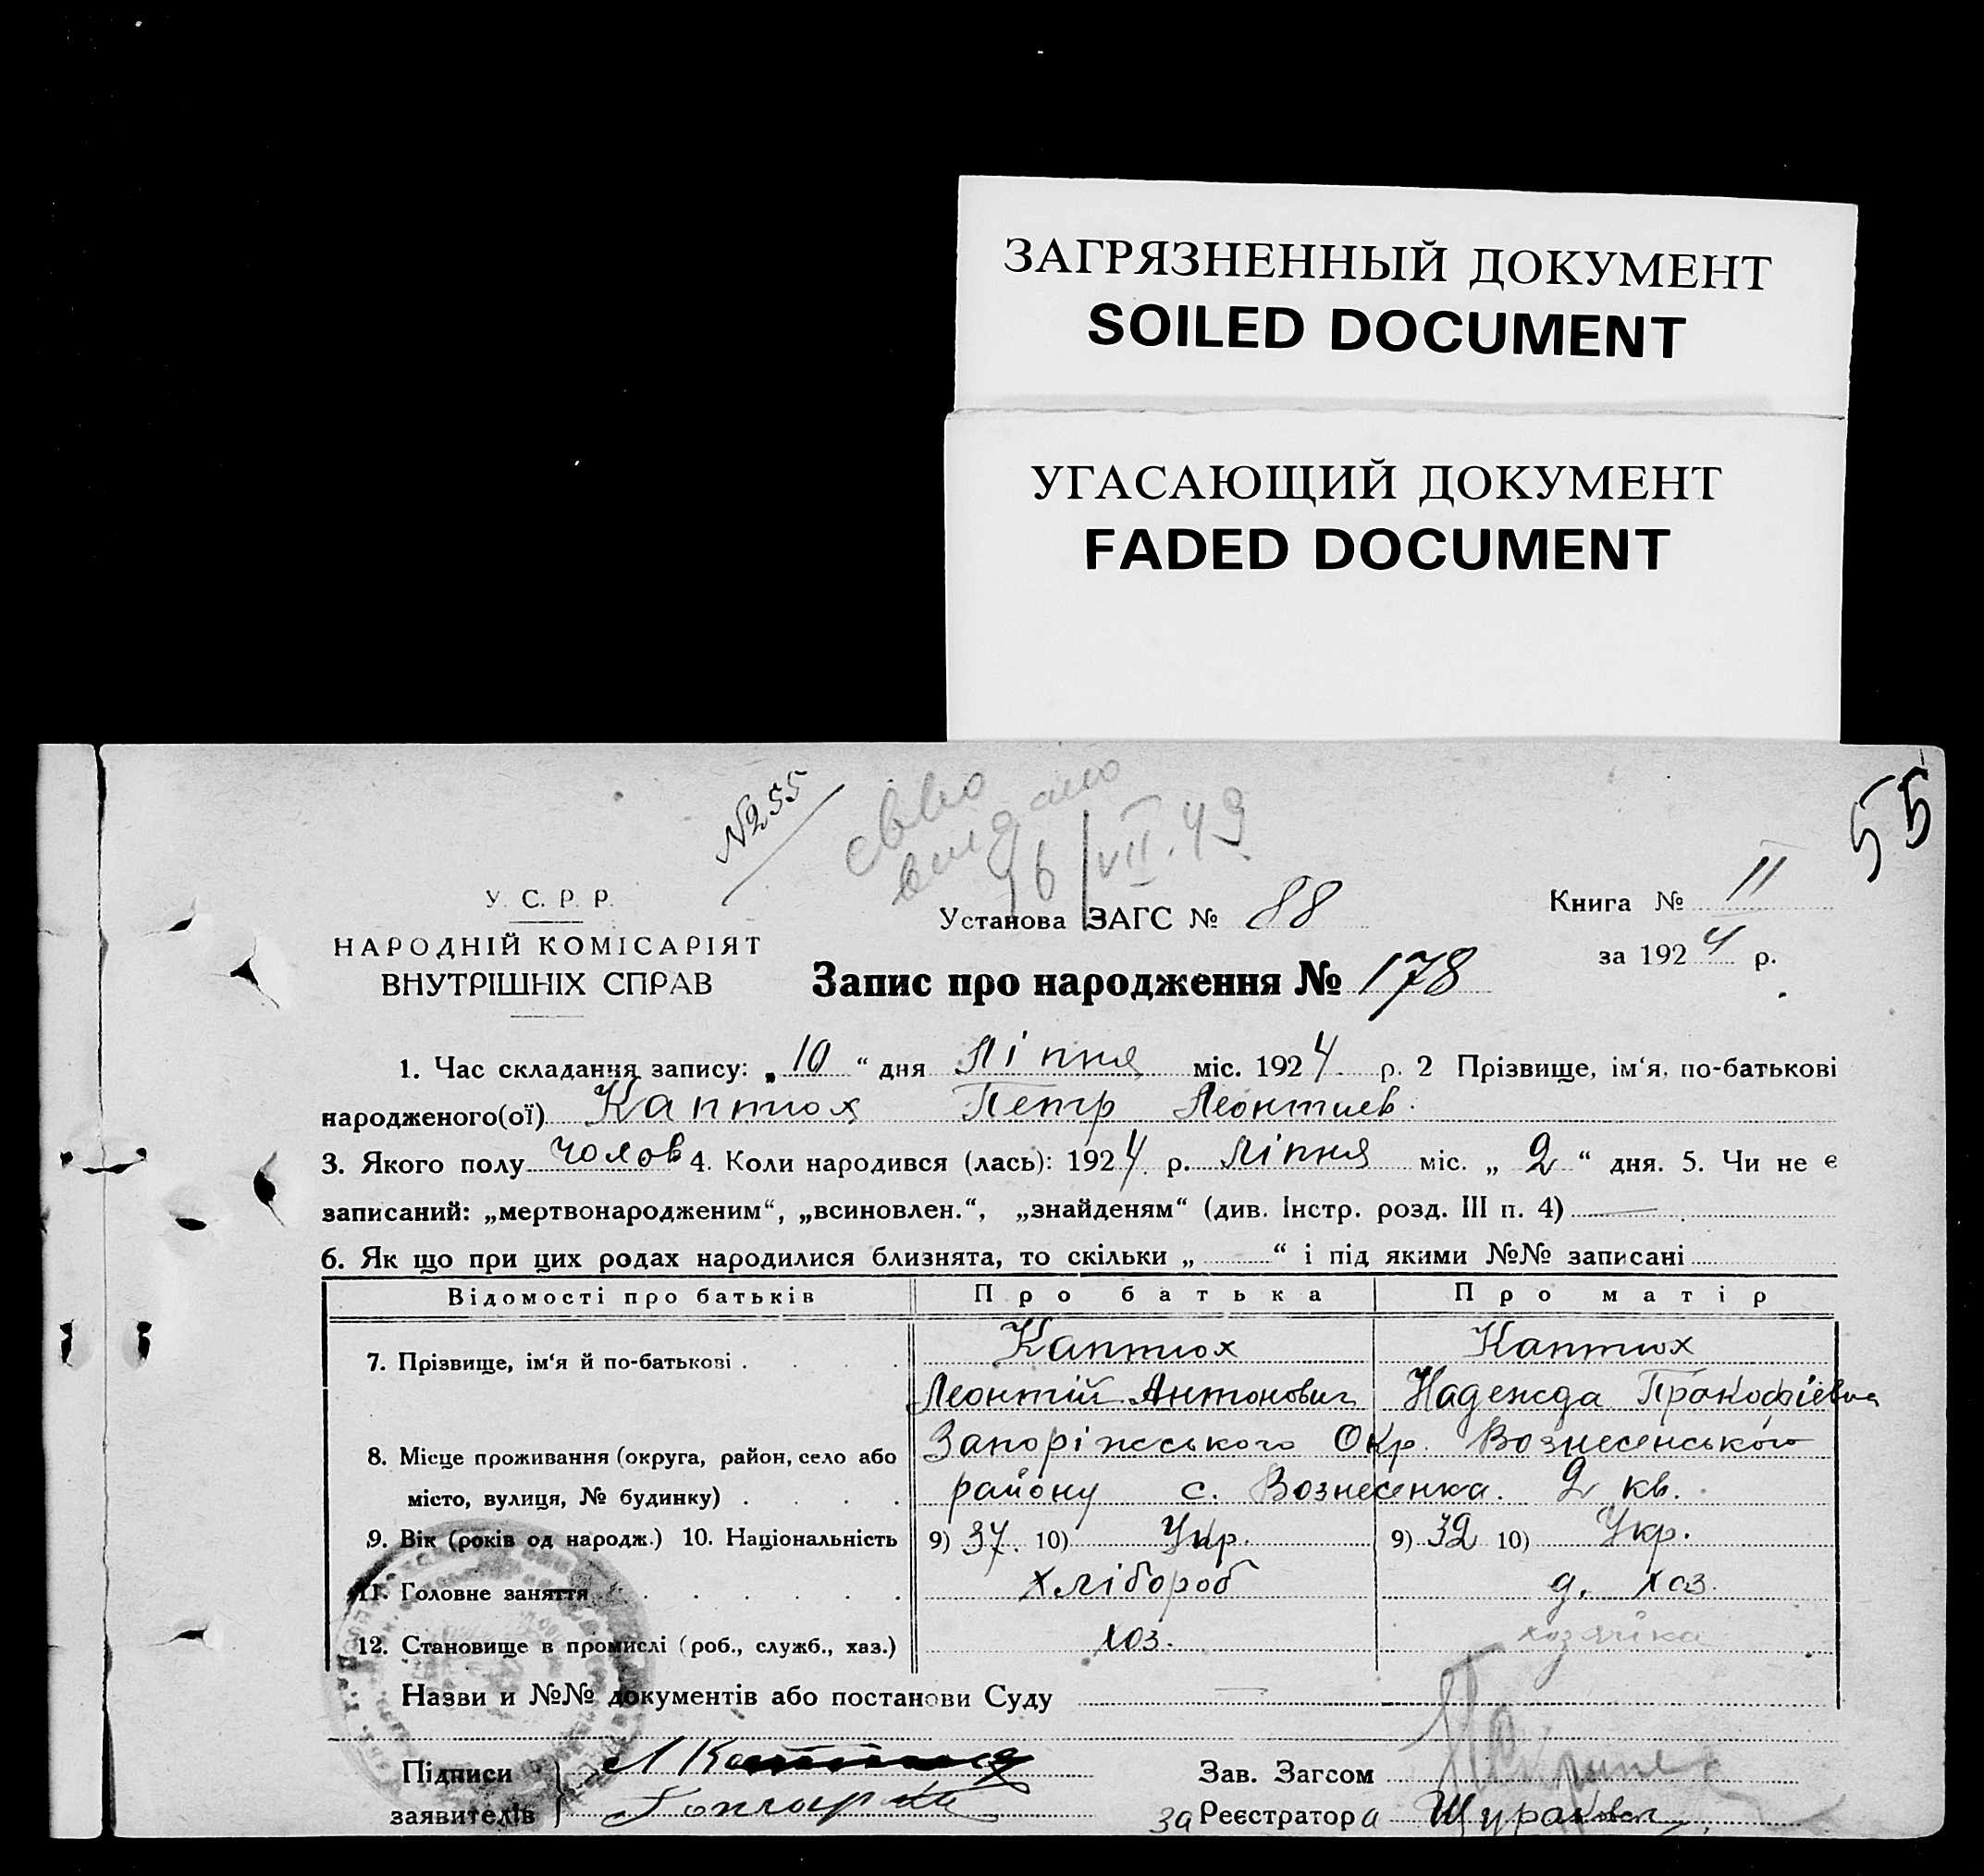 ЗАГРЯЗНЕННЫЙ ДОКУМЕНТ
SOILED DOCUMENT
УГАСАЮЩИЙ ДОКУМЕНТ
FADED DOCUMENT
№255
55
видано
16/VII.49
У. С. Р. Р.
НАРОДНІЙ КОМІСАРІЯТ
ВНУТРІШНІХ СПРАВ
Установа ЗАГС № 88
Книга № II
за 1924 р.
Запис про народження № 178
1. Час складання запису: „10“ дня Ліпня міс. 1924 р. 2 Прізвище, ім‘я, по-батькові
народженого(ої) Каптюх Петр Леонтиев.
3. Якого полу чолов 4. Коли народився (лась): 1924 р. Ліпня міс. „2“ дня. 5. Чи не є
записаний: „мертвонародженим“, „всиновлен.“, „знайденям“ (див. Інстр. розд. III п. 4) —
6. Як що при цих родах народилися близнята, то скільки „ “ і під якими №№ записані
Відомості про батьків Про батька Про матір
7. Прізвище, ім‘я й по-батькові . . . . Каптюх Каптюх
Леонтій Антонович Надежда Прокофіевна
8. Місце проживання (округа, район, село або Запоріжського Окр. Вознесенського
місто, вулиця, № будинку) . . . . району с. Вознесенка. 2 кв.
9. Вік (років од народж.) 10. Національність 9) 37. 10) Укр. 9) 32 10) Укр.
11. Головне заняття . . . . . . Хлібороб д. хоз.
12. Становище в промислі (роб., служб., хаз.) хоз. хозяйка
Назви и №№ документів або постанови Суду —
Підписи
заявителів
Зав. Загсом
За Реєстратора